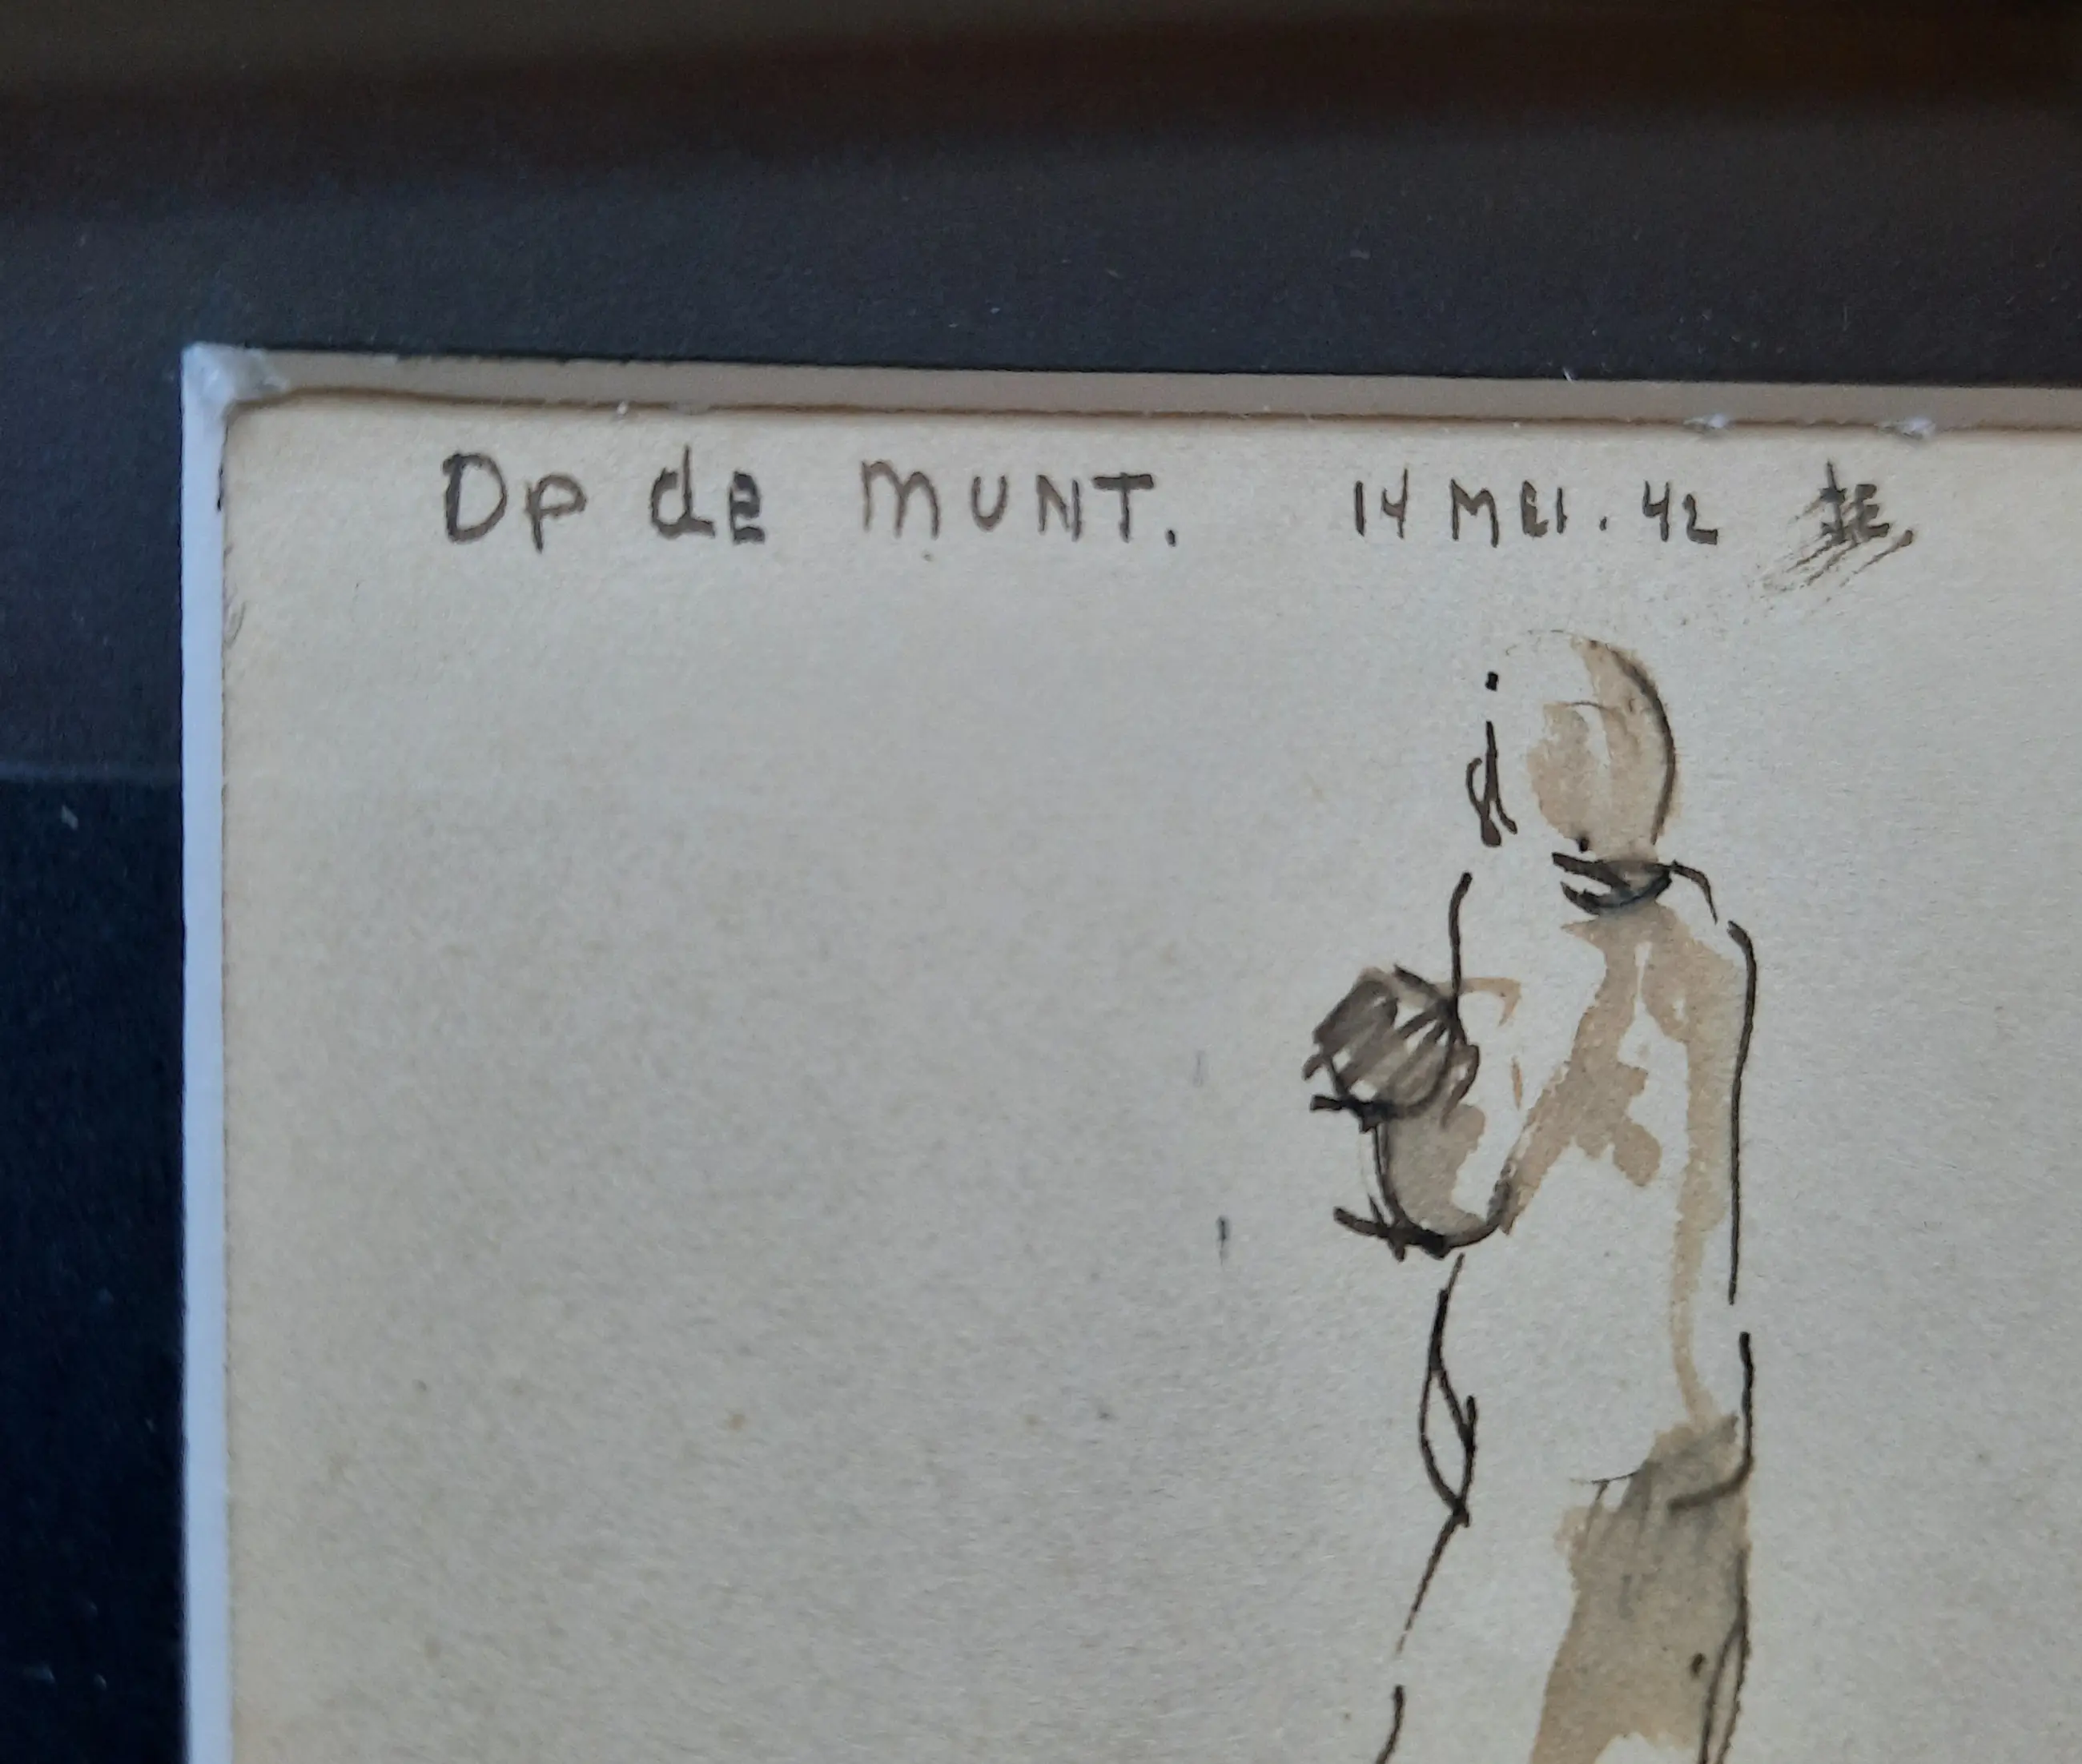 Op de MUNT. 14 MEI. 42 JE.